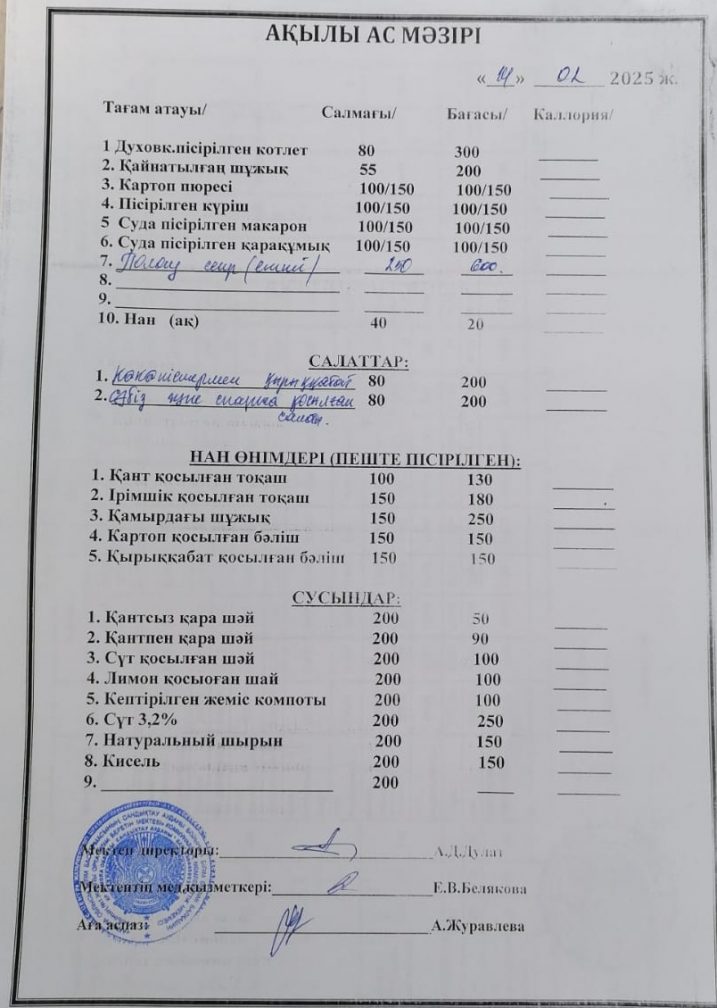 АҚЫЛЫ АС МӘЗІРІ
« 14 » 02 2025 ж.
Тағам атауы/ Салмағы/ Бағасы/ Каллория/
1 Духовк.пісірілген котлет 80 300
2. Қайнатылған шұжық 55 200
3. Картоп пюресі 100/150 100/150
4. Пісірілген күріш 100/150 100/150
5 Суда пісірілген макарон 100/150 100/150
6. Суда пісірілген қарақұмық 100/150 100/150
7. 250 600.
8.
9.
10. Нан (ақ) 40 20
САЛАТТАР:
1. Көкөністермен қырыққабат 80 200
2. Сәбіз және қосылған 80 200
салаты.
НАН ӨНІМДЕРІ (ПЕШТЕ ПІСІРІЛГЕН):
1. Қант қосылған тоқаш 100 130
2. Ірімшік қосылған тоқаш 150 180
3. Қамырдағы шұжық 150 250
4. Картоп қосылған бәліш 150 150
5. Қырыққабат қосылған бәліш 150 150
СУСЫНДАР:
1. Қантсыз қара шәй 200 50
2. Қантпен қара шәй 200 90
3. Сүт қосылған шәй 200 100
4. Лимон қосыоған шай 200 100
5. Кептірілген жеміс компоты 200 100
6. Сүт 3,2% 200 250
7. Натуральный шырын 200 150
8. Кисель 200 150
9. 200
Мектеп директоры: А.Д.Дулат
Мектептің мед.қызметкері: Е.В.Белякова
Аға аспаз: А.Журавлева